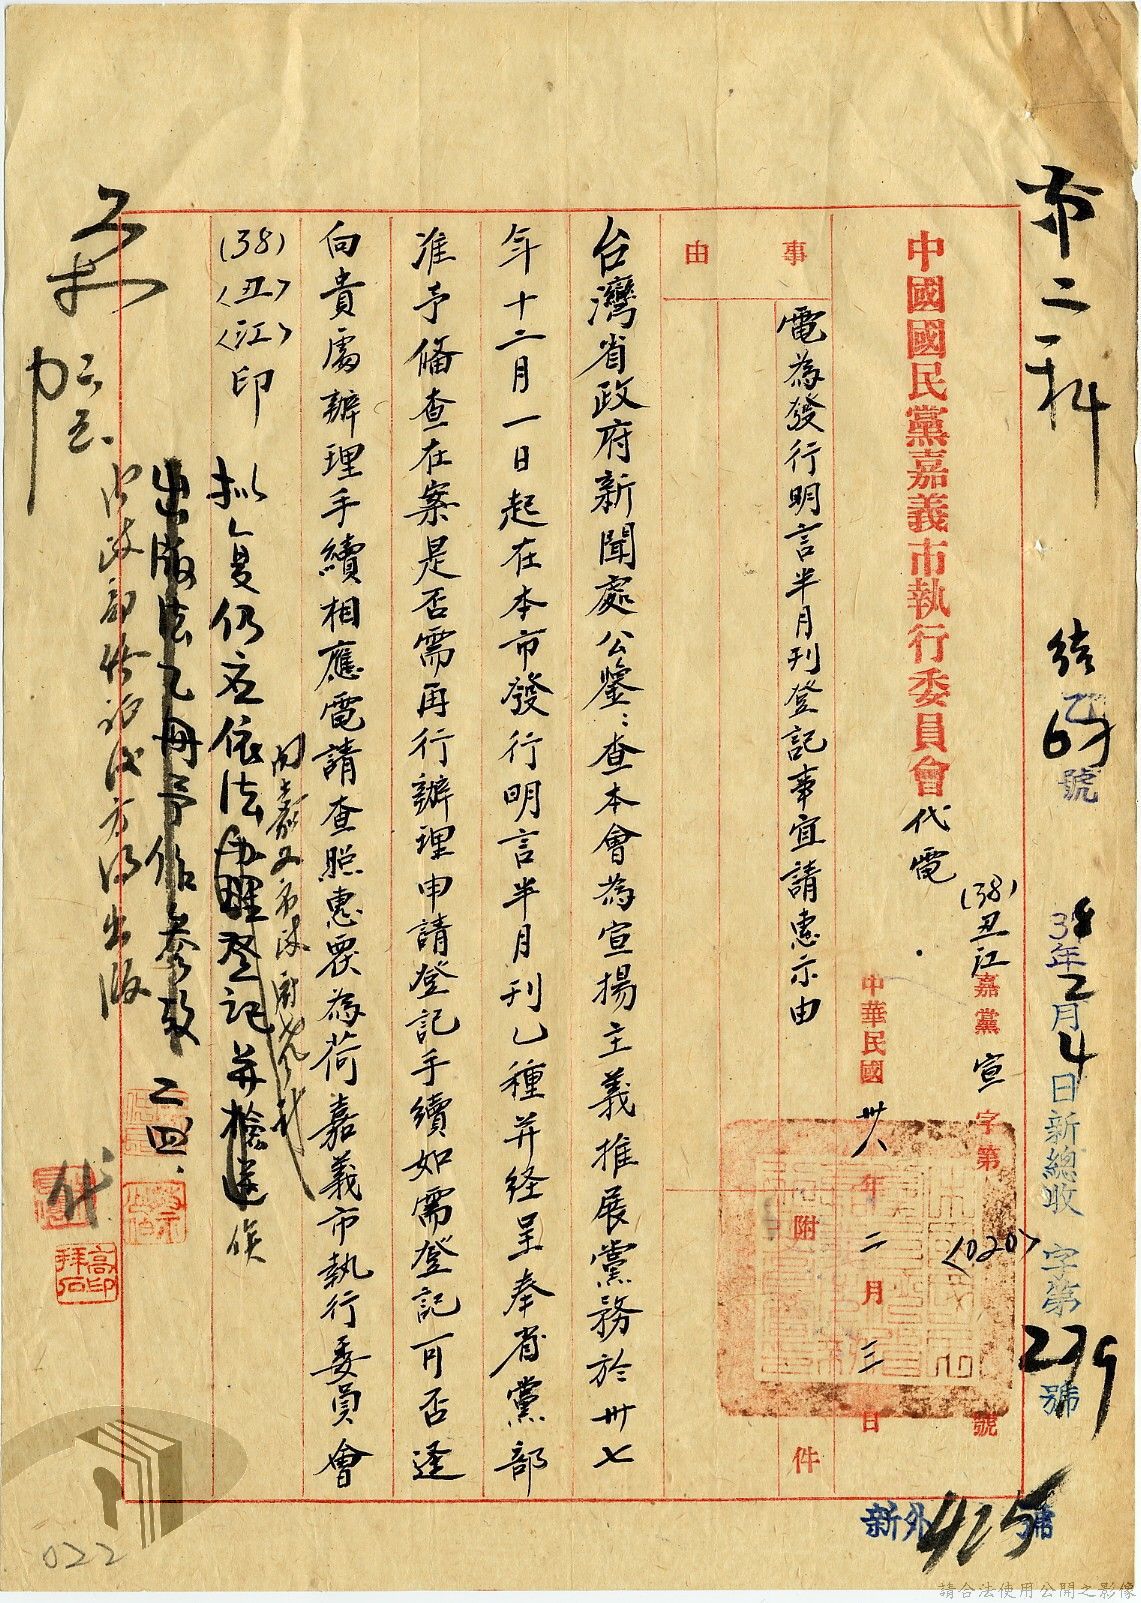 第二科
號
38年2月4日新總收字第279號
中國國民黨嘉義市執行委員會代電
(38)丑江嘉黨宣字第<020>號
中華民國卅八年二月三日
附件
事由
電為發行明言半月刊登記事宜請惠示由
台灣省政府新聞處公鑒：查本會為宣揚主義推展黨務於卅七
年十二月一日起在本市發行明言半月刊乙種并経呈奉省黨部
准予備查在案是否需再行辦理申請登記手續如需登記可否逕
向貴處辦理手續相應電請查照惠覆為荷嘉義市執行委員會
(38)<丑><江>印
拟复仍应依法办理登記并檢送
出版法乙冊予作參攷 二四、
俟
內政部
方得出版
代
高印拜石
新外425號
022
請合法使用公開之影像